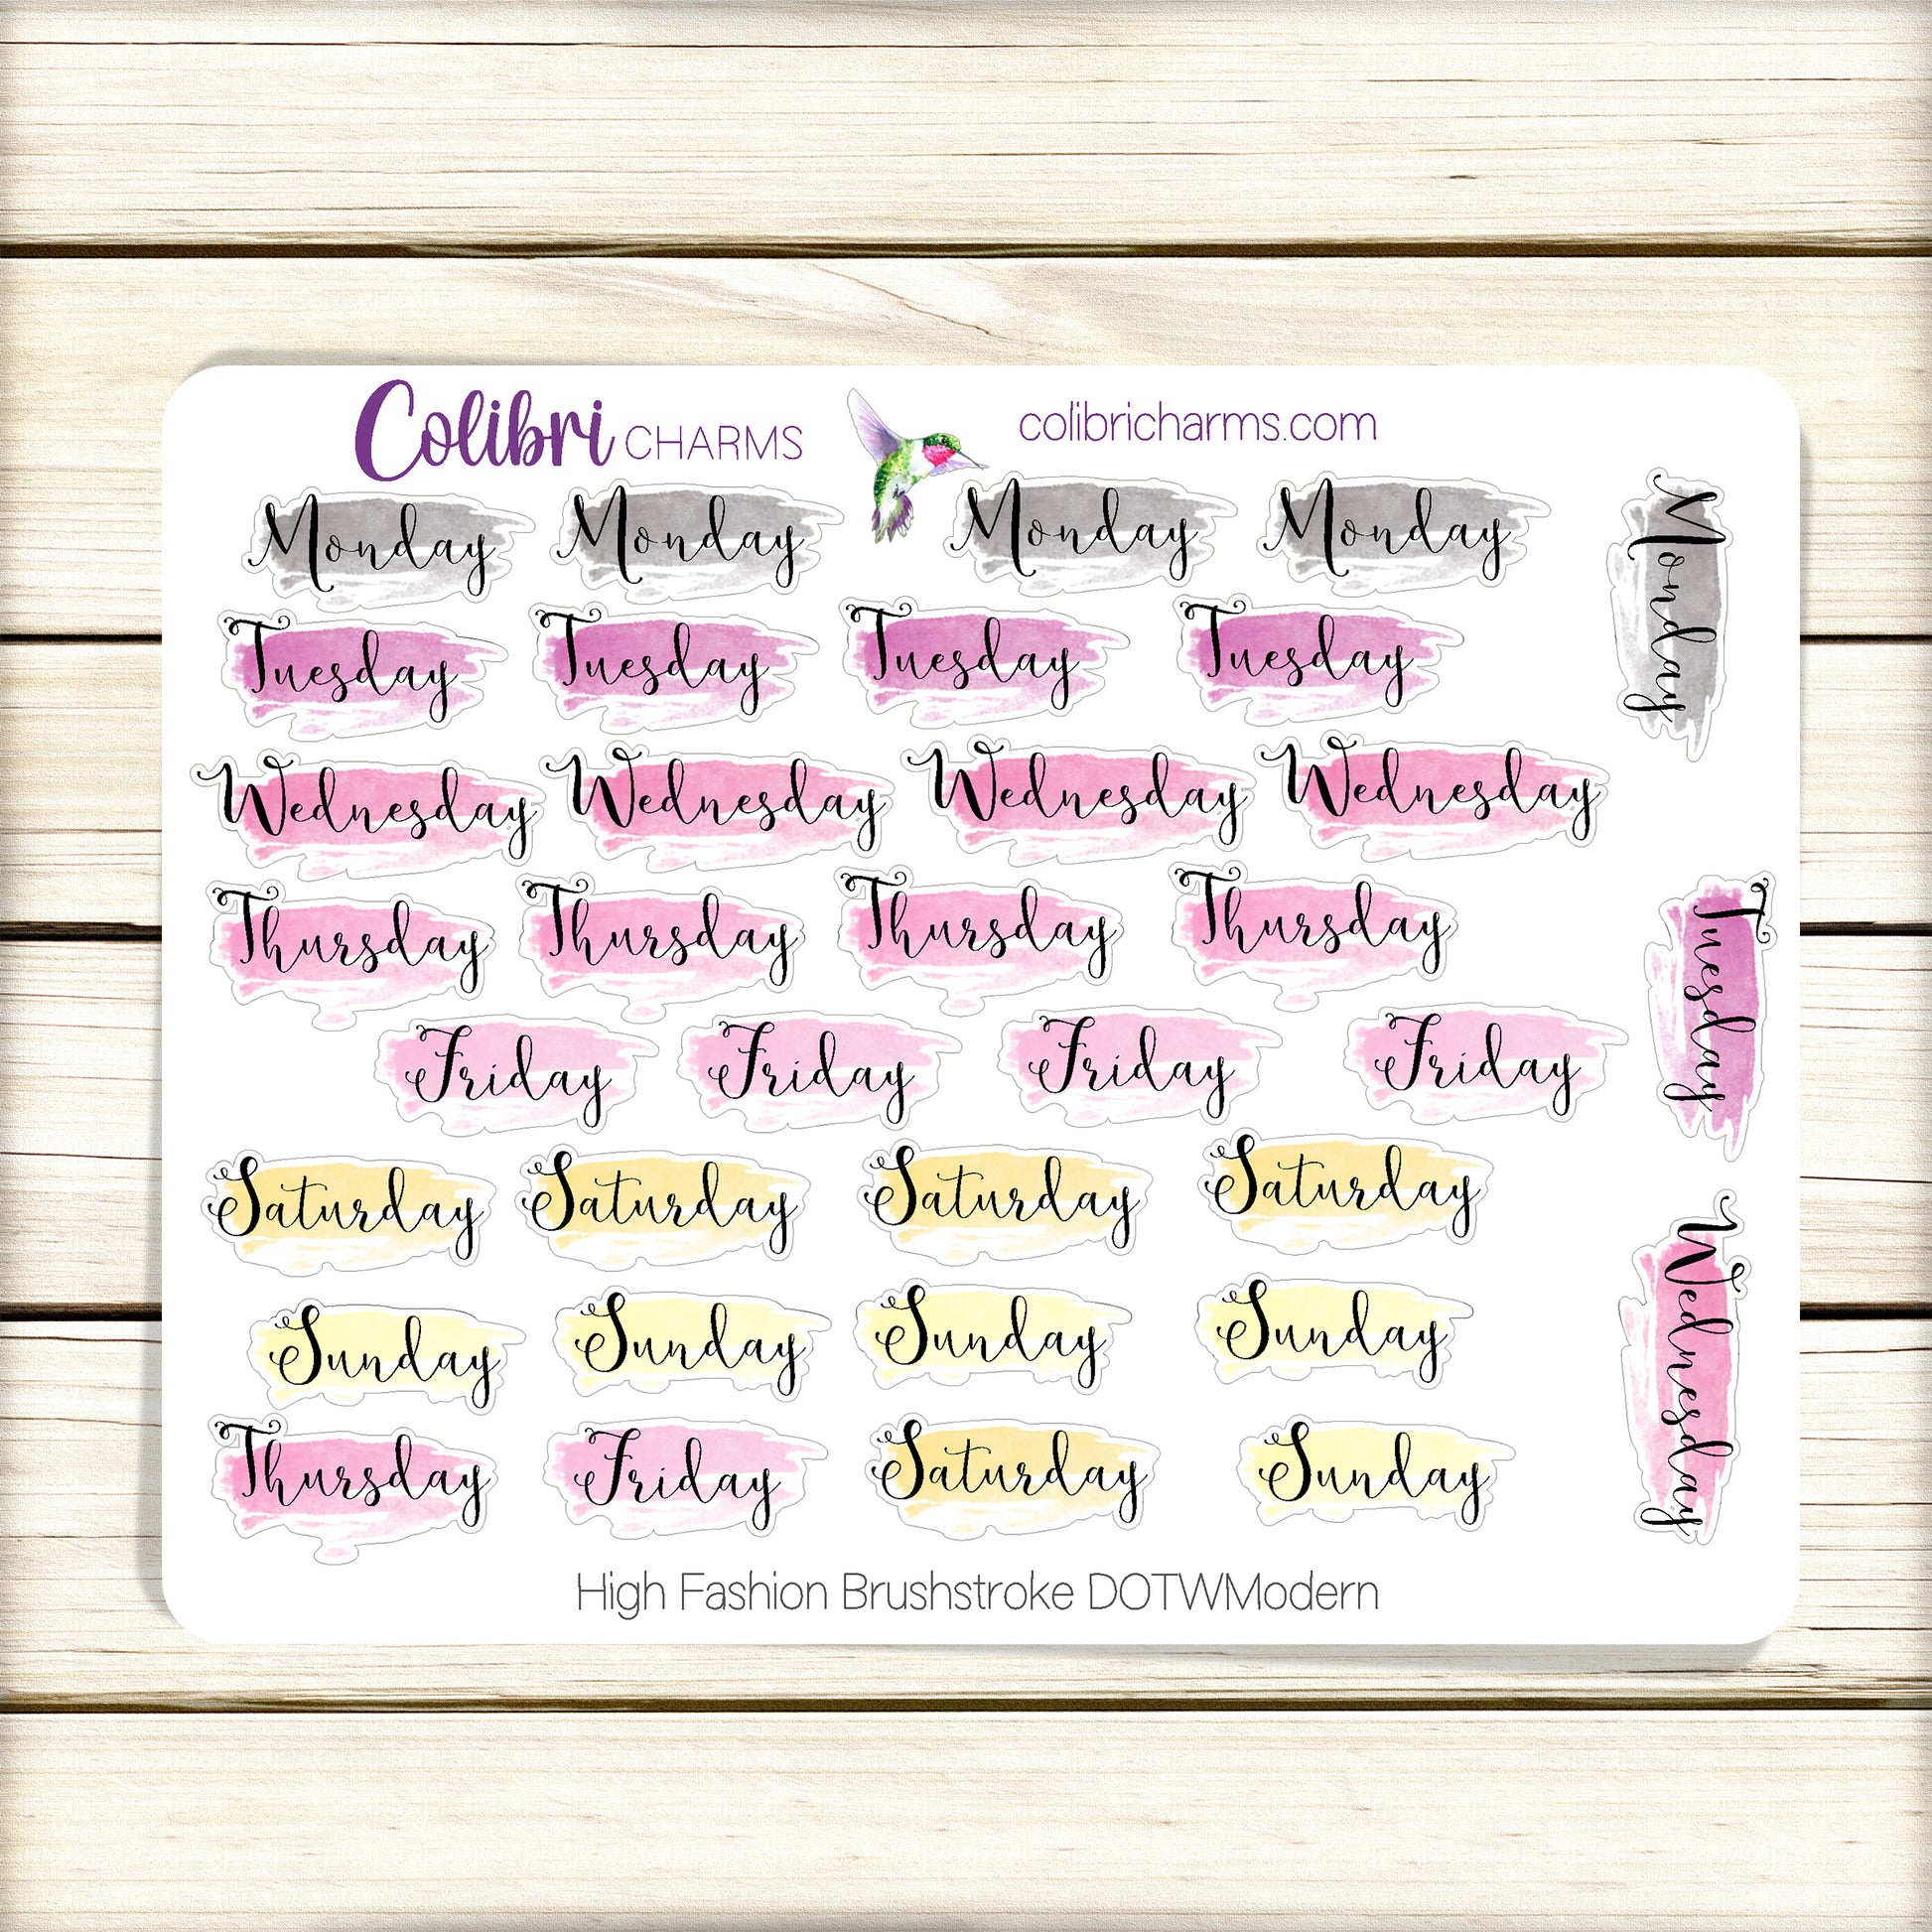 Colibri CHARMS
colibricharms.com
Monday Monday Monday Monday
Tuesday Tuesday Tuesday Tuesday
Wednesday Wednesday Wednesday Wednesday
Thursday Thursday Thursday Thursday
Friday Friday Friday Friday
Saturday Saturday Saturday Saturday
Sunday Sunday Sunday Sunday
Thursday Friday Saturday Sunday
Monday
Tuesday
Wednesday
High Fashion Brushstroke DOTWModern